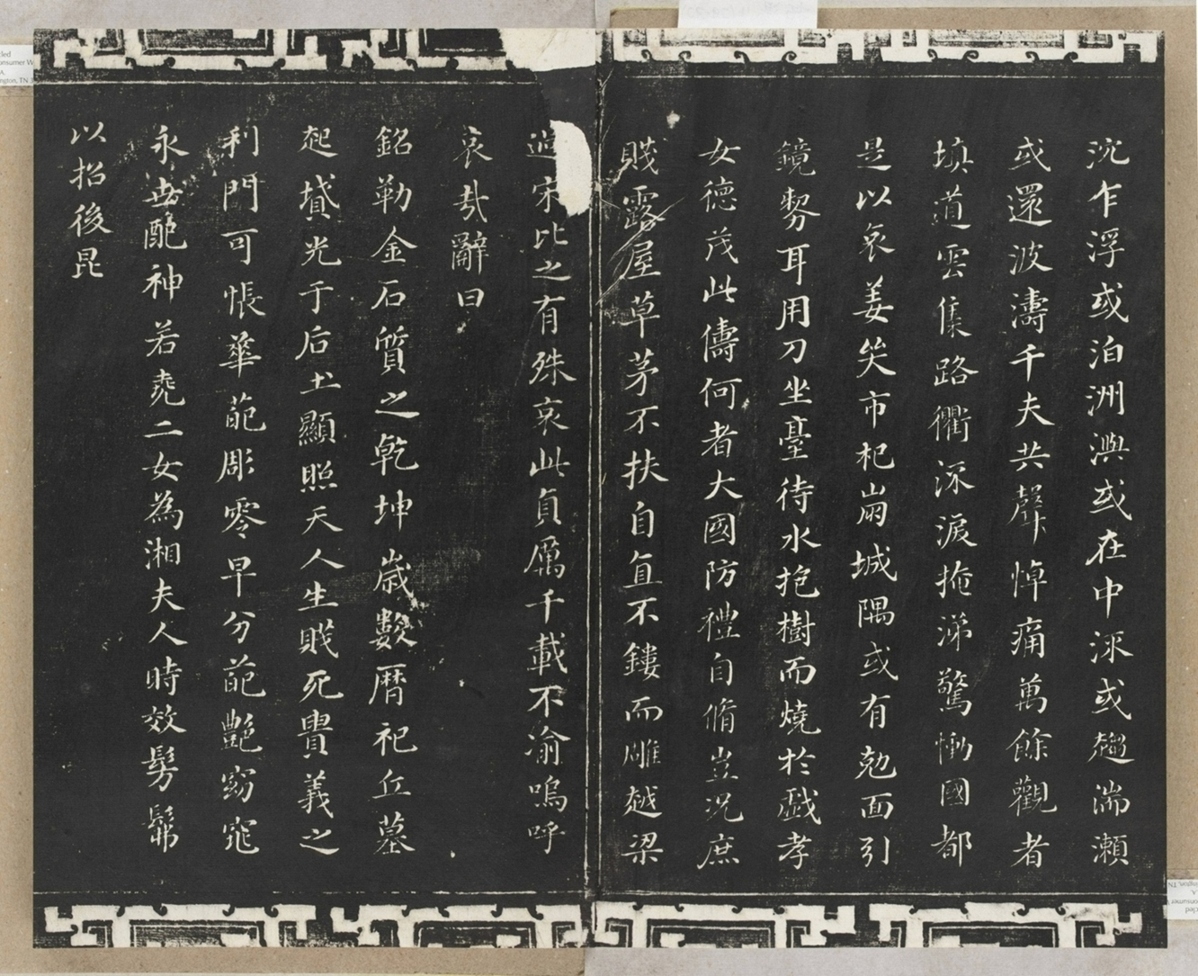 沉乍浮或泊洲嶼或在中流或趨湍瀨
或還波濤千夫共聲悼痛萬餘觀者
填道雲集路衢流淚掩涕驚慟國都
是以哀姜哭市杞崩城隅或有勉面引
鏡剺耳用刀坐臺待水抱樹而燒於戲孝
女德茂此儔何者大國防禮自脩豈況庶
賤露屋草茅不扶自直不鏤而雕越梁
過宋比之有殊哀此貞厲千載不渝嗚呼
哀哉辭曰
銘勒金石質之乾坤歲數曆祀丘墓
起墳光于后土顯照天人生賤死貴義之
利門可悵華葩彫零早分葩艷窈窕
永世配神若堯二女為湘夫人時效髣髴
以招後昆
tled
onsumer W
A.
ngton, TN 3